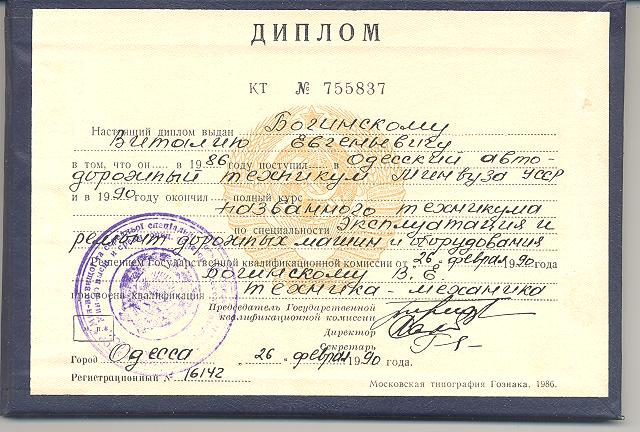 ДИПЛОМ
КТ № 755837
Настоящий диплом выдан Богинскому
Виталию Евгеньевичу
в том, что он в 1986 году поступил в Одесский авто-
дорожный техникум Минвуза УССР
и в 1990 году окончил полный курс
названного техникума
по специальности Эксплуатация и
ремонт дорожных машин и оборудования
Решением Государственной квалификационной комиссии от 26 февраля 1990 года
Богинскому В.Е.
присвоена квалификация техника-механика
Председатель Государственной
квалификационной комиссии
Директор
Секретарь
М. П.
Город Одесса „ 26 " февраля 1990 года.
Регистрационный № 16142
Московская типография Гознака. 1986.